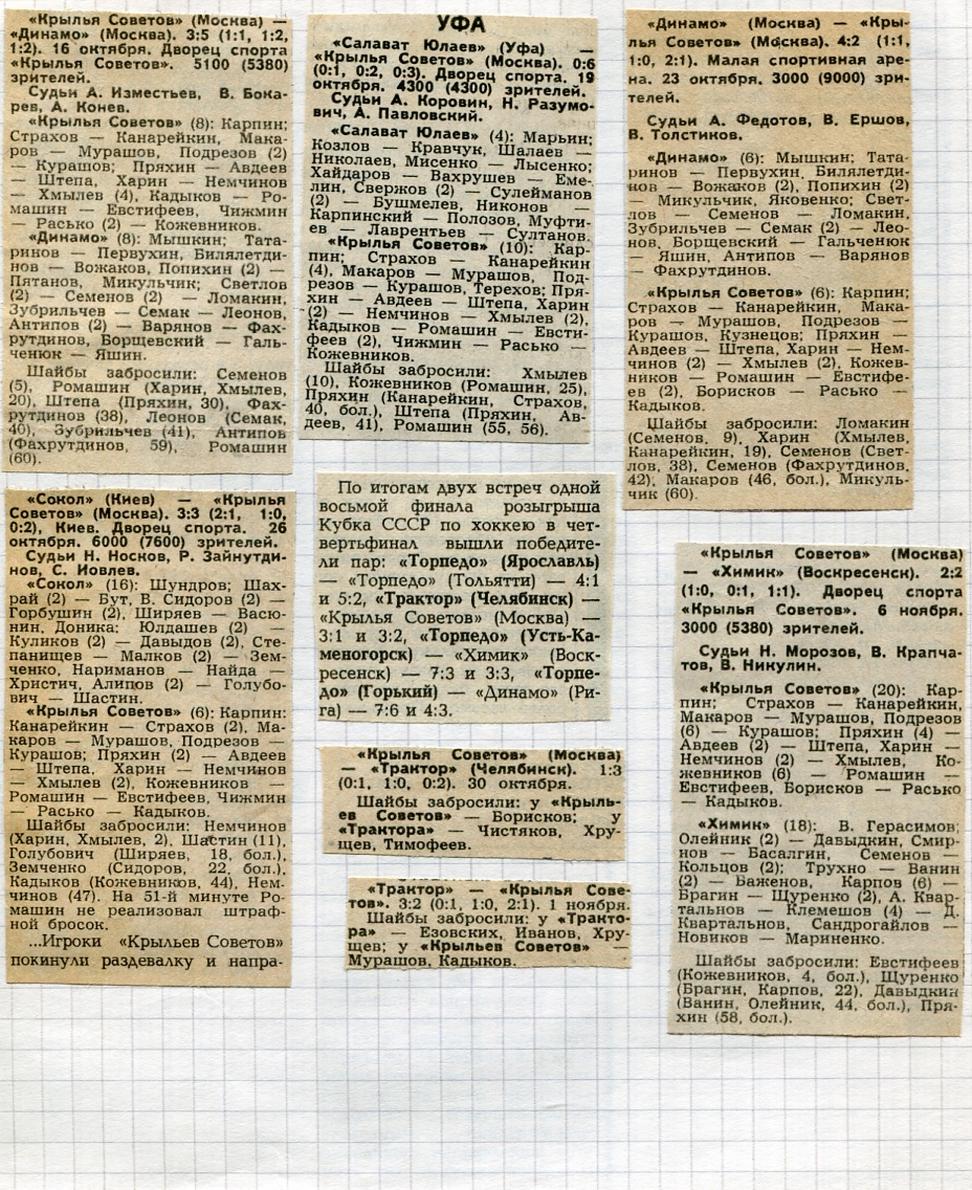 «Крылья Советов» (Москва) —
«Динамо» (Москва). 3:5 (1:1, 1:2,
1:2). 16 октября. Дворец спорта
«Крылья Советов». 5100 (5380)
зрителей.
Судьи А. Изместьев, В. Бока-
рев, А. Конев.
«Крылья Советов» (8): Карпин;
Страхов — Канарейкин, Мака-
ров — Мурашов, Подрезов (2)
— Курашов; Пряхин — Авдеев
— Штепа, Харин — Немчинов
— Хмылев (4), Кадыков — Ро-
машин — Евстифеев, Чижмин
— Расько (2) — Кожевников.
«Динамо» (8): Мышкин; Тата-
ринов — Первухин, Билялетди-
нов — Вожаков, Попихин (2) —
Пятанов, Микульчик; Светлов
(2) — Семенов (2) — Ломакин,
Зубрильчев — Семак — Леонов,
Антипов (2) — Варянов — Фах-
рутдинов, Борщевский — Галь-
ченюк — Яшин.
Шайбы забросили: Семенов
(5), Ромашин (Харин, Хмылев,
20), Штепа (Пряхин, 30), Фах-
рутдинов (38), Леонов (Семак,
40), Зубрильчев (41), Антипов
(Фахрутдинов, 59), Ромашин
(60).
«Сокол» (Киев) — «Крылья
Советов» (Москва). 3:3 (2:1, 1:0,
0:2), Киев. Дворец спорта. 26
октября. 6000 (7600) зрителей.
Судьи Н. Носков, Р. Зайнутди-
нов, С. Иовлев.
«Сокол» (16): Шундров; Шах-
рай (2) — Бут, В. Сидоров (2) —
Горбушин (2), Ширяев — Васю-
нин, Доника; Юлдашев (2) —
Куликов (2) — Давыдов (2), Сте-
панищев — Малков (2) — Зем-
ченко, Нариманов — Найда —
Христич, Алипов (2) — Голубо-
вич — Шастин.
«Крылья Советов» (6): Карпин:
Канарейкин — Страхов (2), Ма-
каров — Мурашов, Подрезов —
Курашов; Пряхин (2) — Авдеев
— Штепа, Харин — Немчинов
— Хмылев (2), Кожевников —
Ромашин — Евстифеев, Чижмин
— Расько — Кадыков.
Шайбы забросили: Немчинов
(Харин, Хмылев, 2), Шастин (11),
Голубович (Ширяев, 18, бол.),
Земченко (Сидоров, 22, бол.),
Кадыков (Кожевников, 44), Нем-
чинов (47). На 51-й минуте Ро-
машин не реализовал штраф-
ной бросок.
...Игроки «Крыльев Советов»
покинули раздевалку и напра-
УФА
«Салават Юлаев» (Уфа) —
«Крылья Советов» (Москва). 0:6
(0:1, 0:2, 0:3). Дворец спорта. 19
октября. 4300 (4300) зрителей.
Судьи А. Коровин, Н. Разумо-
вич, А. Павловский.
«Салават Юлаев» (4): Марьин;
Козлов — Кравчук, Шалаев —
Николаев, Мисенко — Лысенко;
Хайдаров — Вахрушев — Еме-
лин, Свержов (2) — Сулейманов
(2) — Бушмелев, Никонов —
Карпинский — Полозов, Муфти-
ев — Лаврентьев — Султанов.
«Крылья Советов» (10): Кар-
пин; Страхов — Канарейкин
(4), Макаров — Мурашов, Под-
резов — Курашов, Терехов; Пря-
хин — Авдеев — Штепа, Харин
(2) — Немчинов — Хмылев (2),
Кадыков — Ромашин — Евсти-
феев (2), Чижмин — Расько —
Кожевников.
Шайбы забросили: Хмылев
(10), Кожевников (Ромашин, 25),
Пряхин (Канарейкин, Страхов,
40, бол.), Штепа (Пряхин, Ав-
деев, 41), Ромашин (55, 56).
По итогам двух встреч одной
восьмой финала розыгрыша
Кубка СССР по хоккею в чет-
вертьфинал вышли победите-
ли пар: «Торпедо» (Ярославль)
— «Торпедо» (Тольятти) — 4:1
и 5:2, «Трактор» (Челябинск) —
«Крылья Советов» (Москва) —
3:1 и 3:2, «Торпедо» (Усть-Ка-
меногорск) — «Химик» (Воск-
ресенск) — 7:3 и 3:3, «Торпе-
до» (Горький) — «Динамо» (Ри-
га) — 7:6 и 4:3.
«Крылья Советов» (Москва)
— «Трактор» (Челябинск). 1:3
(0:1, 1:0, 0:2). 30 октября.
Шайбы забросили: у «Крыль-
ев Советов» — Борисков; у
«Трактора» — Чистяков, Хру-
щев, Тимофеев.
«Трактор» — «Крылья Сове-
тов». 3:2 (0:1, 1:0, 2:1). 1 ноября.
Шайбы забросили: у «Тракто-
ра» — Езовских, Иванов, Хру-
щев; у «Крыльев Советов» —
Мурашов, Кадыков.
«Динамо» (Москва) — «Кры-
лья Советов» (Москва). 4:2 (1:1,
1:0, 2:1). Малая спортивная аре-
на. 23 октября. 3000 (9000) зри-
телей.
Судьи А. Федотов, В. Ершов,
В. Толстиков.
«Динамо» (6): Мышкин; Тата-
ринов — Первухин, Билялетди-
нов — Вожаков (2), Попихин (2)
— Микульчик, Яковенко; Свет-
лов — Семенов — Ломакин,
Зубрильчев — Семак (2) — Лео-
нов, Борщевский — Гальченюк
— Яшин, Антипов — Варянов
— Фахрутдинов.
«Крылья Советов» (6): Карпин;
Страхов — Канарейкин, Мака-
ров — Мурашов, Подрезов —
Курашов, Кузнецов; Пряхин —
Авдеев — Штепа, Харин — Нем-
чинов (2) — Хмылев (2), Кожев-
ников — Ромашин — Евстифе-
ев (2), Борисков — Расько —
Кадыков.
Шайбы забросили: Ломакин
(Семенов, 9), Харин (Хмылев,
Канарейкин, 19), Семенов (Свет-
лов, 38), Семенов (Фахрутдинов,
42), Макаров (46, бол.), Микуль-
чик (60).
«Крылья Советов» (Москва)
— «Химик» (Воскресенск). 2:2
(1:0, 0:1, 1:1). Дворец спорта
«Крылья Советов». 6 ноября.
3000 (5380) зрителей.
Судьи Н. Морозов, В. Крапча-
тов, В. Никулин.
«Крылья Советов» (20): Кар-
пин; Страхов — Канарейкин,
Макаров — Мурашов, Подрезов
(6) — Курашов; Пряхин (4) —
Авдеев (2) — Штепа, Харин —
Немчинов (2) — Хмылев, Ко-
жевников (6) — Ромашин —
Евстифеев, Борисков — Расько
— Кадыков.
«Химик» (18): В. Герасимов;
Олейник (2) — Давыдкин, Смир-
нов — Басалгин, Семенов —
Кольцов (2); Трухно — Ванин
(2) — Баженов, Карпов (6) —
Брагин — Щуренко (2), А. Квар-
тальнов — Клемешов (4) — Д.
Квартальнов, Сандрогайлов —
Новиков — Мариненко.
Шайбы забросили: Евстифеев
(Кожевников, 4, бол.), Щуренко
(Брагин, Карпов, 22), Давыдкин
(Ванин, Олейник, 44, бол.), Пря-
хин (58, бол.).